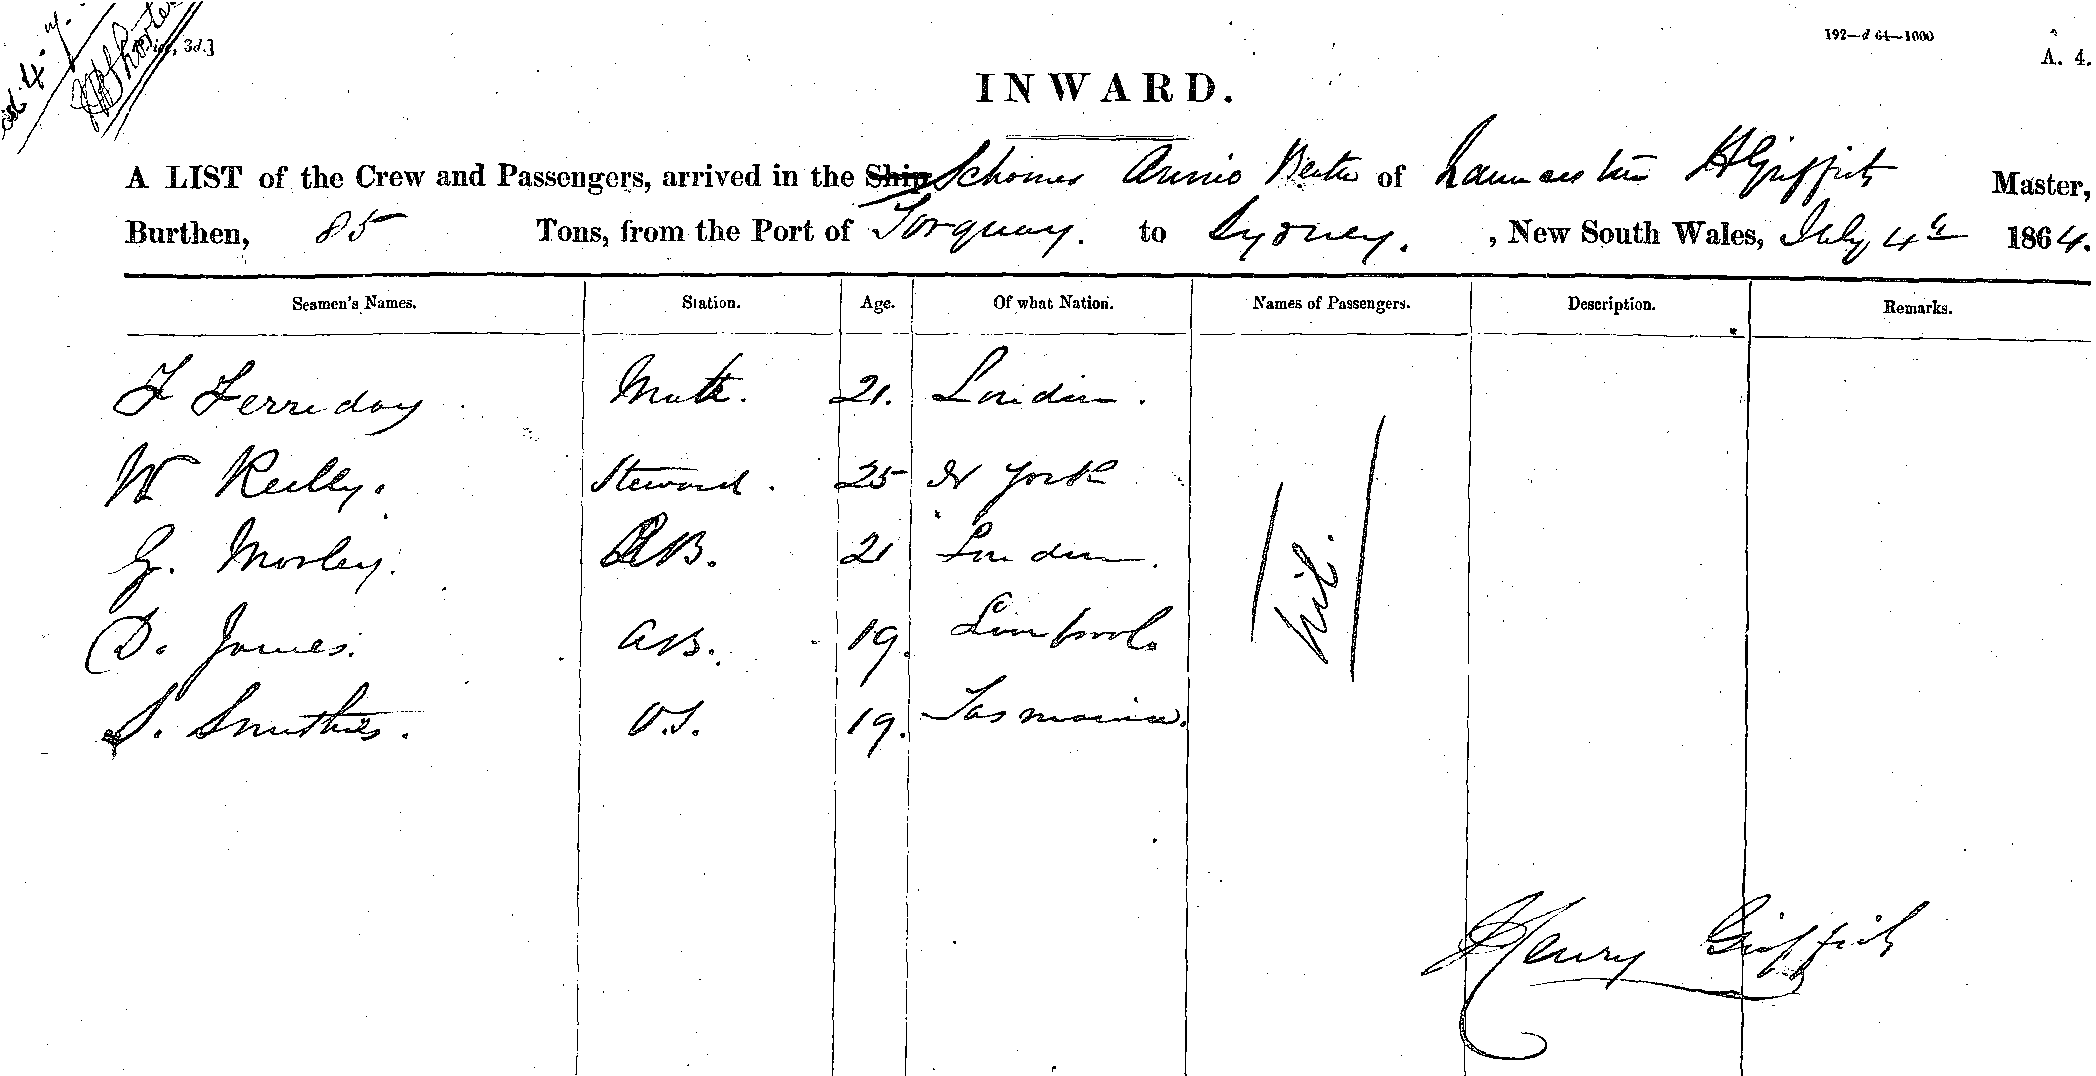 [Price, 3d.]
192—d 64—1000
A. 4.
INWARD.
A LIST of the Crew and Passengers, arrived in the Ship Schooner Annie Beate of Launceston H Griffith Master,
Burthen, 85 Tons, from the Port of Torquay. to Sydney. , New South Wales, July 4th 1864.
Seamen's Names. Station. Age. Of what Nation. Names of Passengers. Description. Remarks.
F Ferriday Mate. 21. London.
W Reilly. Steward. 25 N York
G. Morley. AB. 21 London.
D. James. AB. 19. Liverpool.
S. Smithies. O.S. 19. Tasmania.
Nil.
Henry Griffith